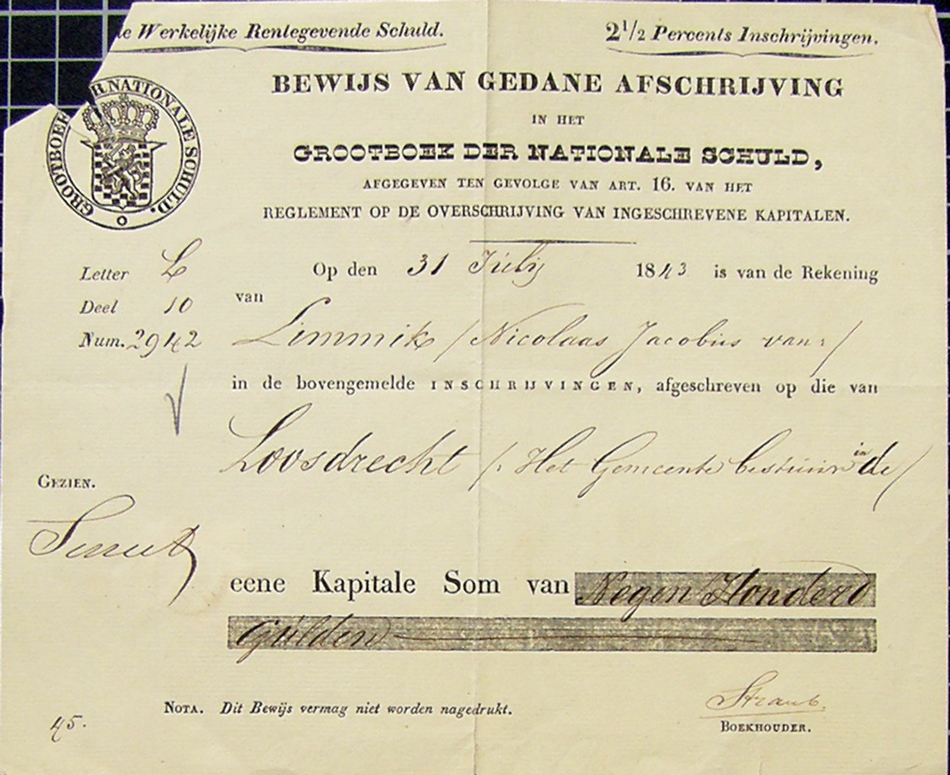 Werkelijke Rentegevende Schuld.
2 1/2 Percents Inschrijvingen.
BEWIJS VAN GEDANE AFSCHRIJVING
IN HET
GROOTBOEK DER NATIONALE SCHULD,
AFGEGEVEN TEN GEVOLGE VAN ART. 16. VAN HET
REGLEMENT OP DE OVERSCHRIJVING VAN INGESCHREVENE KAPITALEN.
GROOTBOEK NATIONALE SCHULD.
Letter L
Deel 10
Num. 2942
Op den 31 Julij 1843 is van de Rekening
van
Limmik / Nicolaas Jacobus van: /
in de bovengemelde INSCHRIJVINGEN, afgeschreven op die van
Loosdrecht /: Het Gemeente bestuur in de /
GEZIEN.
eene Kapitale Som van Negen Honderd
Gulden
NOTA. Dit Bewijs vermag niet worden nagedrukt.
Straub.
BOEKHOUDER.
45.